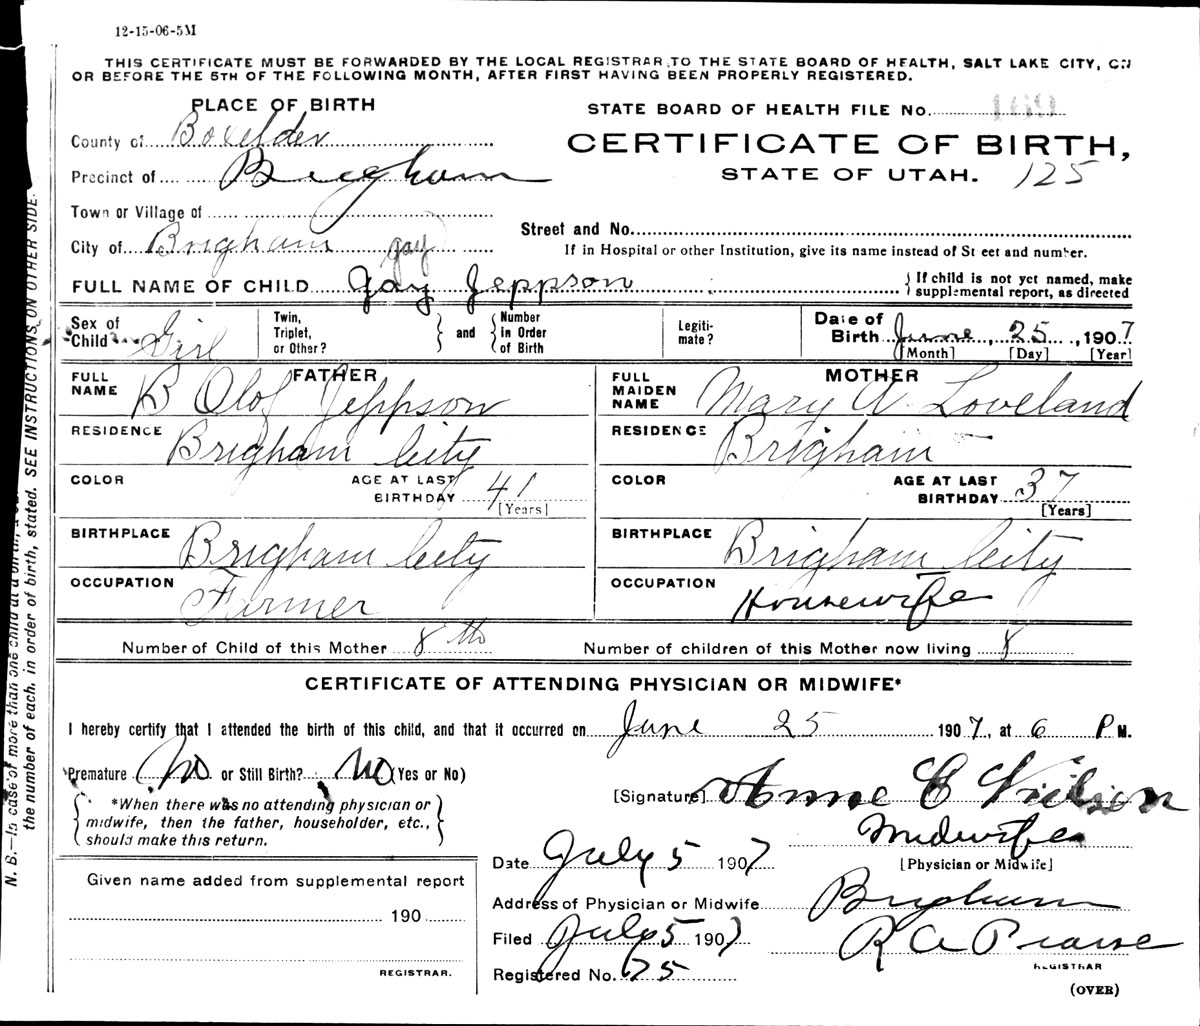 12-15-06-5M
THIS CERTIFICATE MUST BE FORWARDED BY THE LOCAL REGISTRAR TO THE STATE BOARD OF HEALTH, SALT LAKE CITY, ON
OR BEFORE THE 5TH OF THE FOLLOWING MONTH, AFTER FIRST HAVING BEEN PROPERLY REGISTERED.
PLACE OF BIRTH
STATE BOARD OF HEALTH FILE No. 169
County of Boxelder
CERTIFICATE OF BIRTH,
Precinct of Brigham
STATE OF UTAH. 125
Town or Village of
Street and No.
City of Brigham
If in Hospital or other Institution, give its name instead of Street and number.
gay
FULL NAME OF CHILD Gay Jeppson
If child is not yet named, make
supplemental report, as directed
Sex of
Child Girl
Twin,
Triplet,
or Other?
and
Number
in Order
of Birth
Legiti-
mate?
Date of
Birth June, 25, 1907
[Month] [Day] [Year]
FATHER
FULL
NAME B Olof Jeppson
MOTHER
FULL
MAIDEN
NAME Mary A Loveland
RESIDENCE Brigham City
RESIDENCE Brigham
COLOR
AGE AT LAST
BIRTHDAY 41
[Years]
COLOR
AGE AT LAST
BIRTHDAY 37
[Years]
BIRTHPLACE Brigham City
BIRTHPLACE Brigham City
OCCUPATION Farmer
OCCUPATION Housewife
Number of Child of this Mother 8th
Number of children of this Mother now living 8
CERTIFICATE OF ATTENDING PHYSICIAN OR MIDWIFE*
I hereby certify that I attended the birth of this child, and that it occurred on June 25 1907, at 6 P M.
Premature No or Still Birth? No (Yes or No)
*When there was no attending physician or
midwife, then the father, householder, etc.,
should make this return.
[Signature] Anne C Nielson
Midwife
[Physician or Midwife]
Date July 5 1907
Given name added from supplemental report
190
REGISTRAR.
Address of Physician or Midwife Brigham
Filed July 5 1907
R A Pearse
REGISTRAR
Registered No. 125
(OVER)
N. B.—In case of more than one child at a birth,
the number of each, in order of birth, stated. SEE INSTRUCTIONS ON OTHER SIDE.